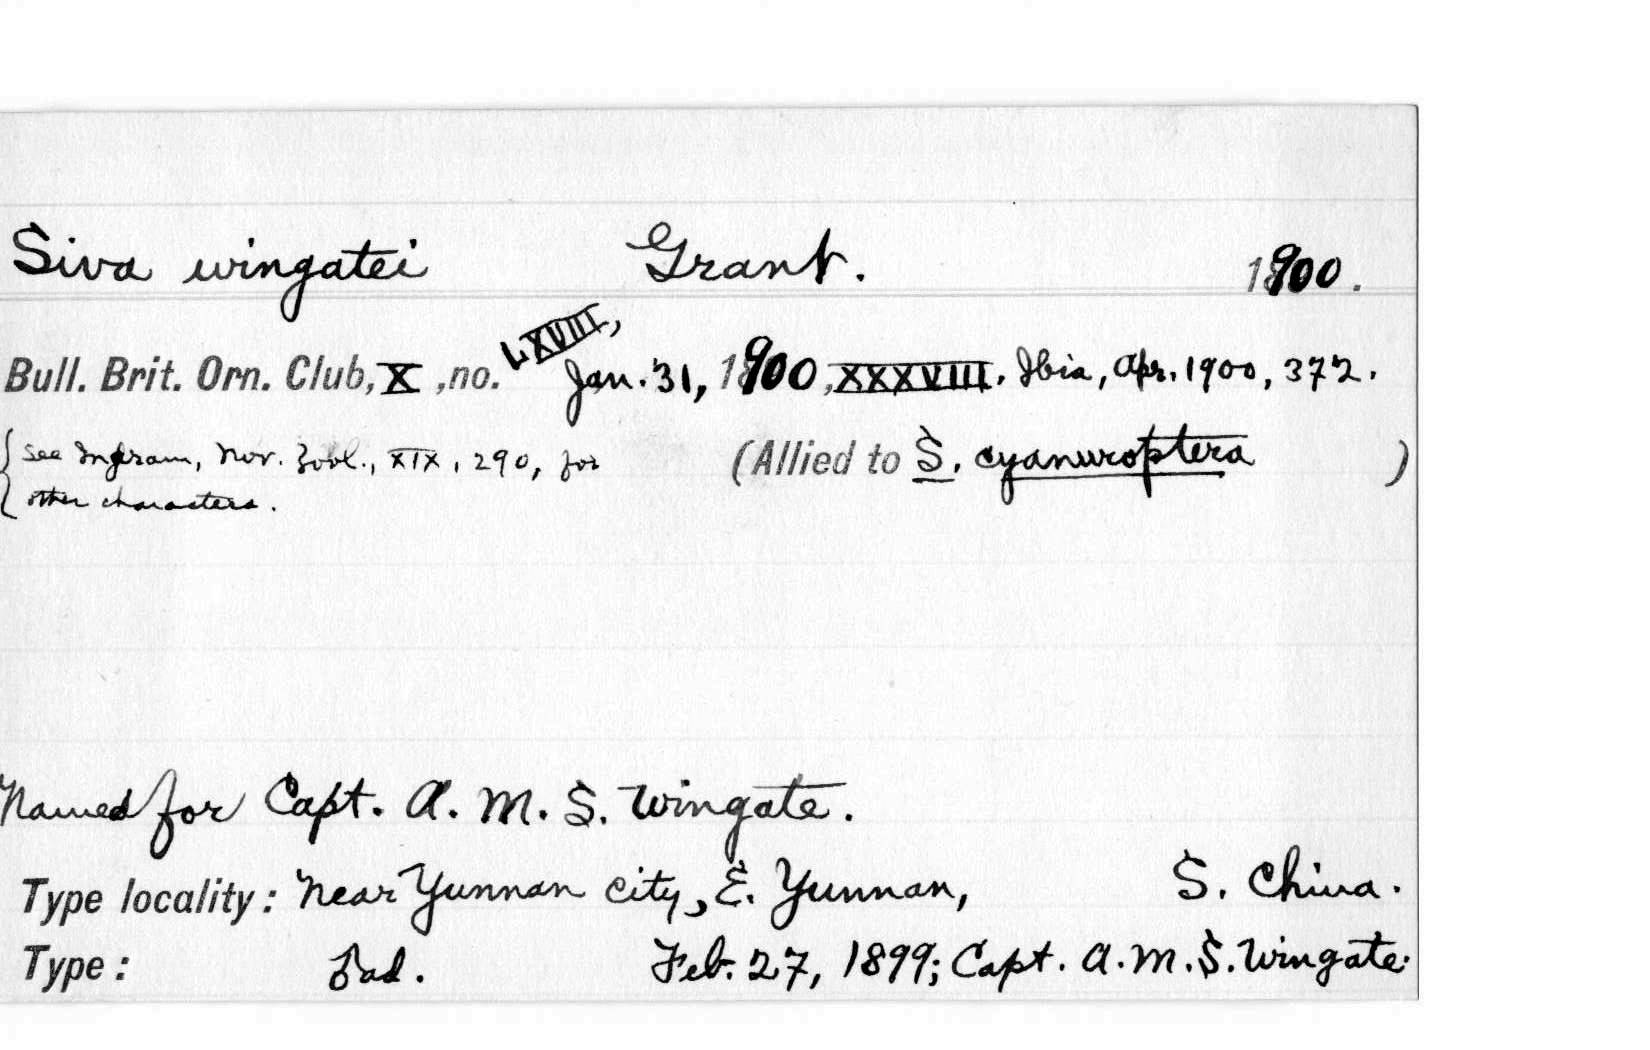 Siva wingatei Grant. 1900.
Bull. Brit. Orn. Club, X, no. LXVIII, Jan. 31, 1900, XXXVIII. Ibis, Apr. 1900, 372.
{ See Ingram, Nov. Zool., XIX, 290, for (Allied to S. cyanuroptera )
other characters.
Named for Capt. A. M. S. Wingate.
Type locality: Near Yunnan city, E. Yunnan, S. China.
Type: ad. Feb. 27, 1899; Capt. A. M. S. Wingate.